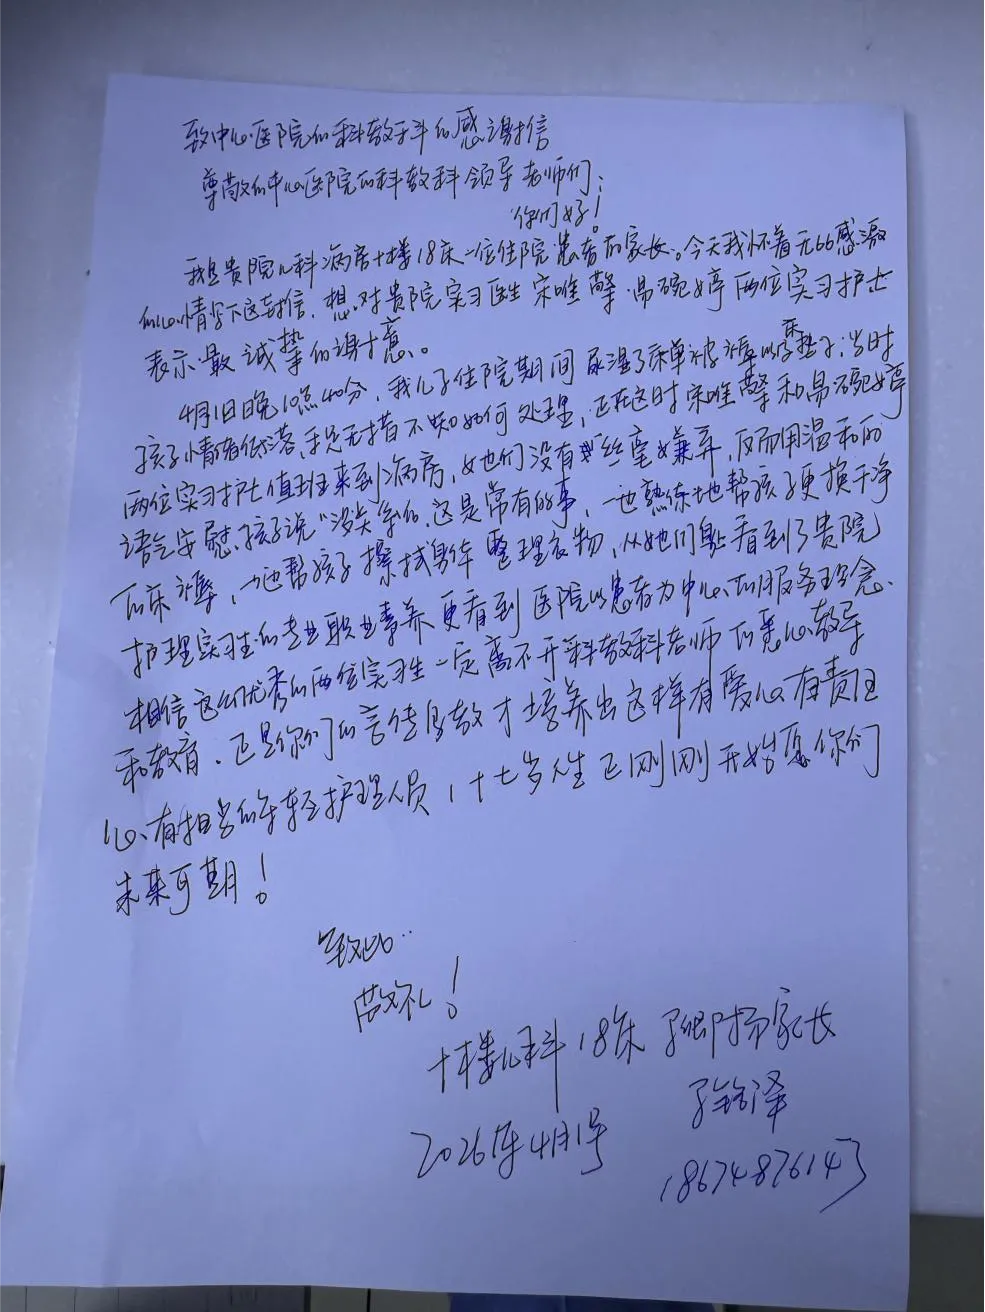 致中心医院的科教科的感谢信
尊敬的中心医院的科教科领导老师们:
你们好!
我是贵院儿科病房十楼18床一位住院患者而家长。今天我怀着无比感激
的心情写下这封信,想对贵院实习医生宋唯馨、易碗婷两位实习护士
表示最诚挚的谢意。
4月1日晚10点40分,我儿子住院期间尿湿了床单被褥以及垫子,当时
孩子情绪低落,手足无措不知如何处理,正在这时宋唯馨和易碗婷
两位实习护士值班来到病房,她们没有丝毫嫌弃,反而用温和的
语气安慰孩子说“没关系的,这是常有的事,一边熟练地帮孩子更换干净
的床褥,一边帮孩子擦拭身体整理衣物,从她们身上看到了贵院
护理实习生的专业职业素养更看到医院以患者为中心的服务理念。
相信这么优秀的两位实习生一定离不开科教科老师的悉心教导
和教育,正是你们的言传身教才培养出这样有爱心有责任
心、有担当的年轻护理人员,十七岁人生正刚刚开始愿你们
未来可期!
致此..
敬礼!
十楼儿科18床 家长
2026年4月1号
18674876143